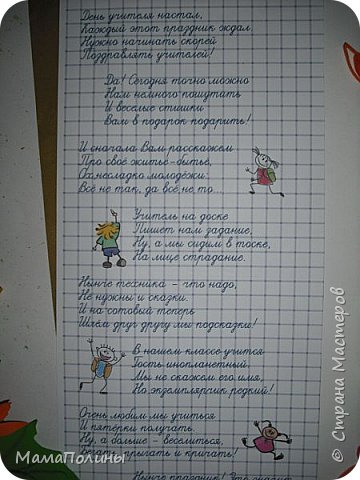 День учителя настал,
Каждый этот праздник ждал.
Нужно начинать скорей
Поздравлять учителей!
Да! Сегодня точно можно
Нам немного пошутить
И веселые стишки
Вам в подарок подарить!
И сначала Вам расскажем
Про своё житьё-бытьё,
Ох, несладко молодёжи:
Всё не так, да всё не то...
Учитель на доске
Пишет нам задание,
Ну, а мы сидим в тоске,
На лице страдание.
Нынче техника - что надо,
Не нужны и сказки.
И на сотовый теперь
Шлём друг другу мы подсказки!
В нашем классе учится
Гость инопланетный,
Мы не скажем его имя,
Но экземплярчик редкий!
Очень любим мы учиться
И пятёрки получать.
Ну, а больше - веселиться,
Бегать, прыгать и кричать!
Нынче праздник! Это значит
МамаПолины
© Страна Мастеров